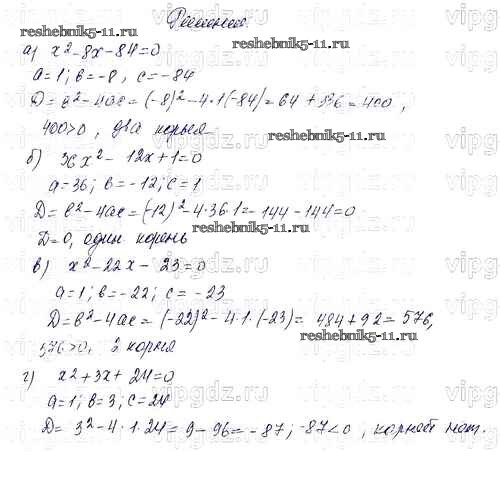 Решение
reshebnik5-11.ru
а) x²-8x-84=0
a=1; в=-8, c=-84
D=в²-4ac=(-8)²-4·1(-84)=64+336=400,
400>0, два корня
reshebnik5-11.ru
б) 36x²-12x+1=0
a=36; в=-12; c=1
D=в²-4ac=(-12)²-4·36·1=144-144=0
D=0, один корень
reshebnik5-11.ru
в) x²-22x-23=0
a=1; в=-22; c=-23
D=в²-4ac=(-22)²-4·1·(-23)=484+92=576,
reshebnik5-11.ru
576>0, 2 корня
г) x²+3x+24=0
a=1; в=3; c=24
reshebnik5-11.ru
D=3²-4·1·24=9-96=-87; -87<0, корней нет.
vipgdz.ru